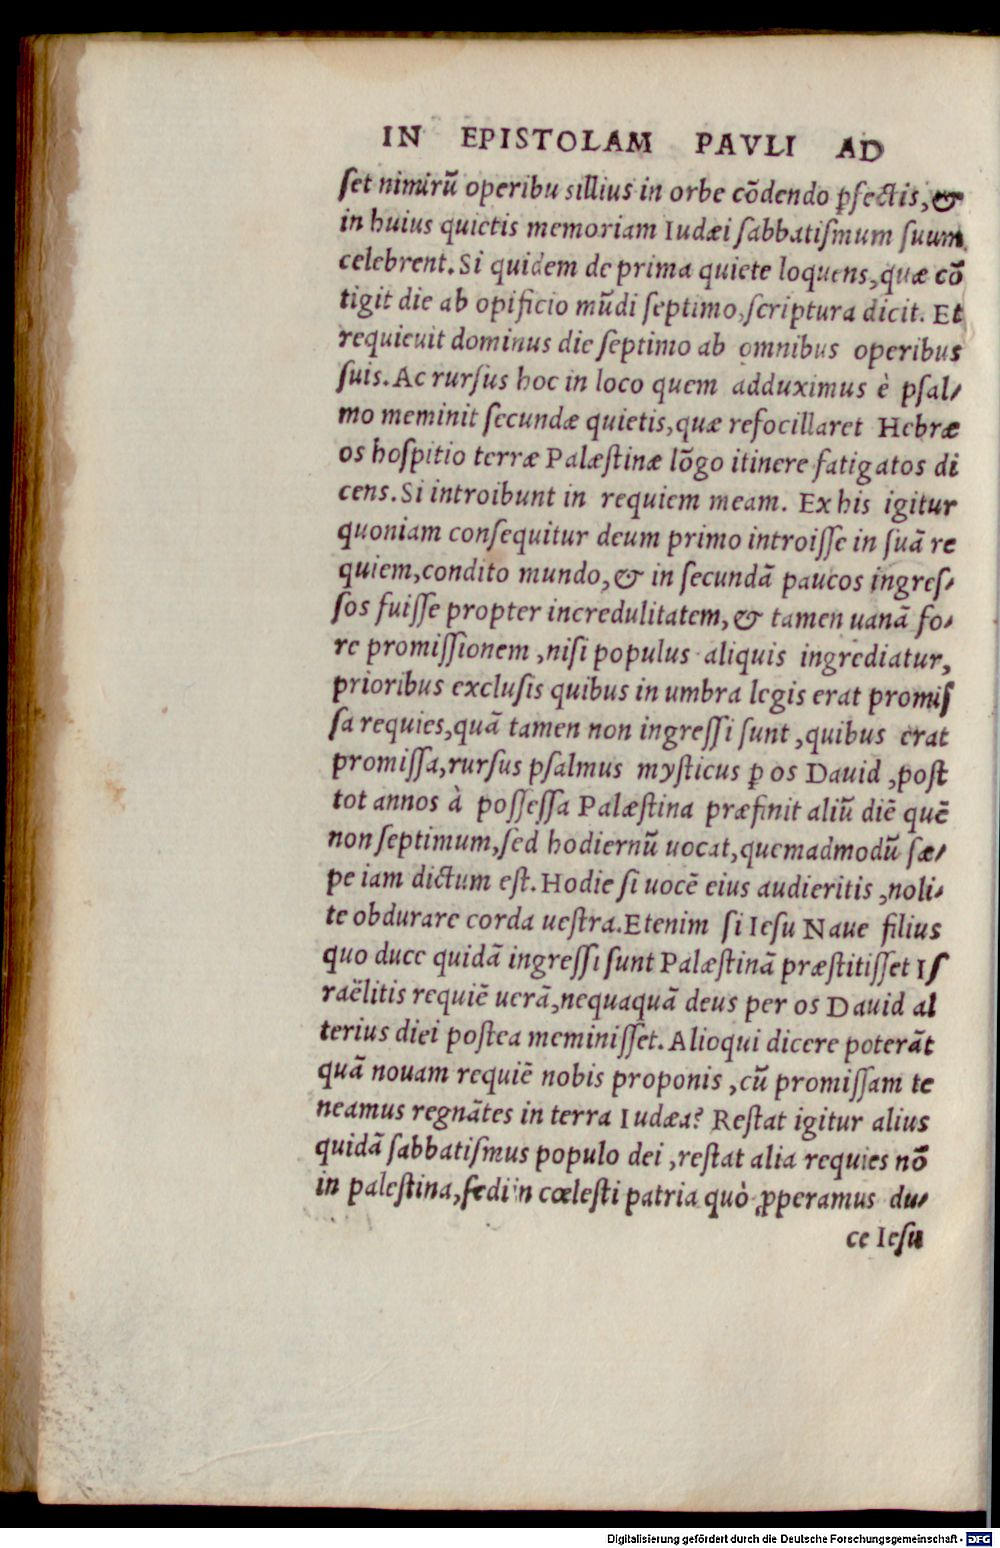 IN EPISTOLAM PAVLI AD
ſet nimirũ operibu sillius in orbe cõdendo ꝑfectis, &
in huius quietis memoriam Iudæi ſabbatiſmum ſuum
celebrent. Si quidem de prima quiete loquens, quæ cõ
tigit die ab opificio mũdi ſeptimo, ſcriptura dicit. Et
requieuit dominus die ſeptimo ab omnibus operibus
ſuis. Ac rurſus hoc in loco quem adduximus è pſal-
mo meminit ſecundæ quietis, quæ refocillaret Hebræ
os hoſpitio terræ Palæſtinæ lõgo itinere fatigatos di
cens. Si introibunt in requiem meam. Ex his igitur
quoniam conſequitur deum primo introiſſe in ſuã re
quiem, condito mundo, & in ſecundã paucos ingreſ-
ſos fuiſſe propter incredulitatem, & tamen uanã fo-
re promiſſionem, niſi populus aliquis ingrediatur,
prioribus excluſis quibus in umbra legis erat promiſ
ſa requies, quã tamen non ingreſſi ſunt, quibus erat
promiſſa, rurſus pſalmus myſticus ꝑ os Dauid, poſt
tot annos à poſſeſſa Palæſtina præfinit aliũ diẽ quẽ
non ſeptimum, ſed hodiernũ uocat, quemadmodũ ſæ-
pe iam dictum eſt. Hodie ſi uocẽ eius audieritis, noli-
te obdurare corda ueſtra. Etenim ſi Ieſu Naue filius
quo duce quidã ingreſſi ſunt Palæſtinã præſtitiſſet Iſ
raëlitis requiẽ uerã, nequaquã deus per os Dauid al
terius diei poſtea meminiſſet. Alioqui dicere poterãt
quã nouam requiẽ nobis proponis, cũ promiſſam te
neamus regnãtes in terra Iudæa? Reſtat igitur alius
quidã ſabbatiſmus populo dei, reſtat alia requies nõ
in paleſtina, ſedi n cœleſti patria quò ꝓperamus du-
ce Ieſu
Digitalisierung gefördert durch die Deutsche Forschungsgemeinschaft - DFG